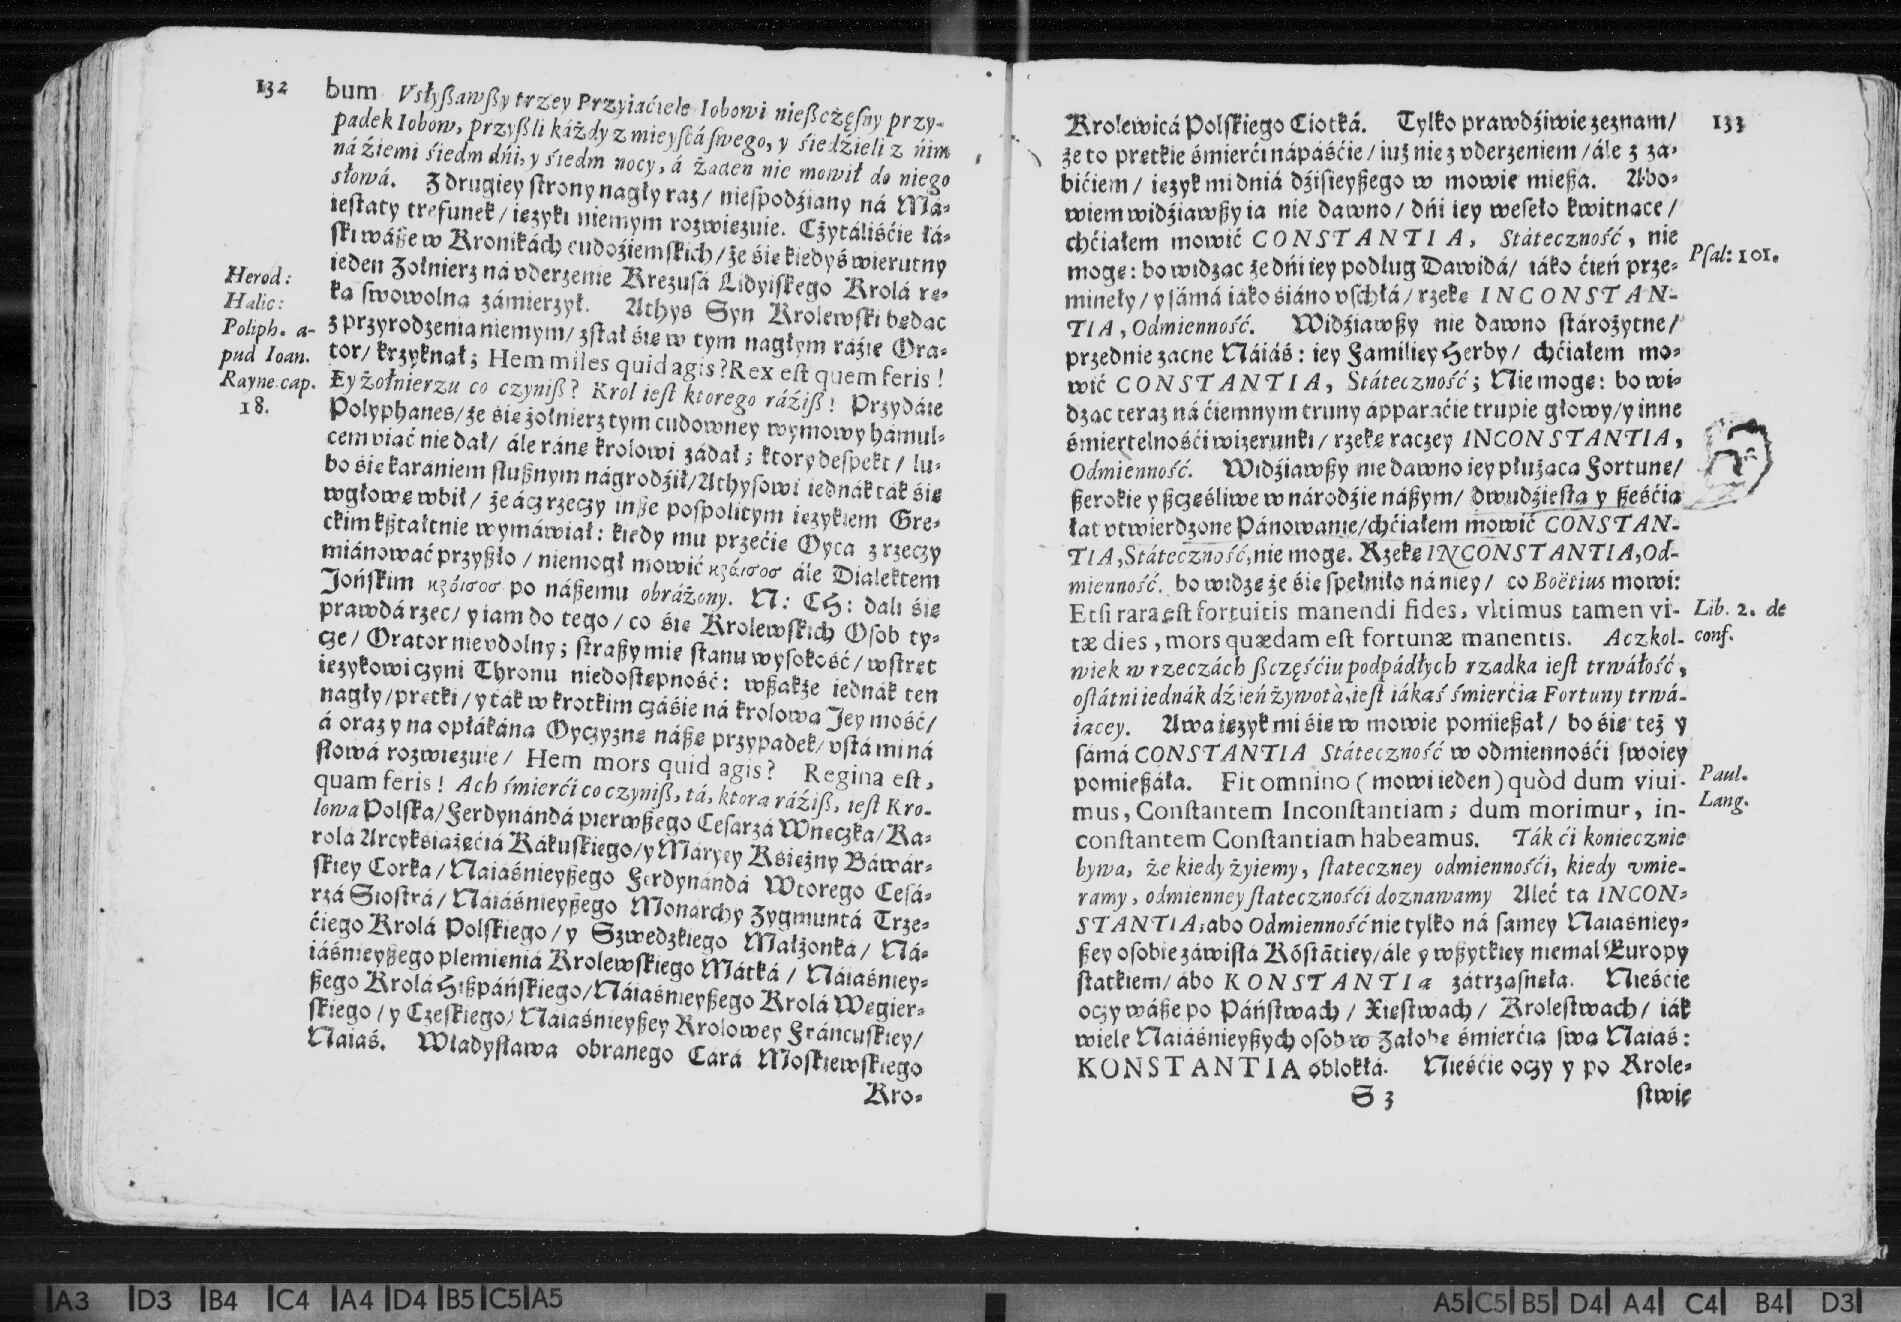 132
bum Vsłyßawßy trzey Przyiaćiele Iobowi nießczęsny przy-
padek Iobow, przyßli káżdy z mieyscá swego, y śiedzieli z ńim
ná źiemi śiedm dńi, y śiedm nocy, á żaden nie mowił do niego
słowá. Z drugiey strony nagły raz/ niespodźiany ná Má-
iestaty trefunek/ ięzyki niemym rozwięzuie. Czytáliśćie łá-
ski wáße w Kronikách cudoźiemskich/ że się kiedyś wierutny
ieden Zołnierz ná vderzenie Krezusá Lidyiskego Krolá rę-
ką swowolną zámierzył. Athys Syn Krolewski będąc
z przyrodzenia niemym/ zstał się w tym nagłym ráźie Ora-
tor/ krzyknął; Hem miles quid agis? Rex est quem feris!
Ey żołnierzu co czyniß? Krol iest ktorego ráźiß! Przydáie
Polyphanes/ że się żołnierz tym cudowney wymowy hámul-
cem viąć nie dał/ ále ránę krolowi zádał; ktory despekt/ lu-
bo się karániem slußnym nágrodźił/ Athysowi iednák ták się
w głowę wbił/ że ácz rzeczy inße pospolitym ięzykiem Gre-
ckim kßtałtnie wymáwiał: kiedy mu przećie Oyca z rzeczy
miánować przyßło/ niemogł mowić κροισος ále Dialektem
Jońskim κροισος po náßemu obráżony. N: CH: dali się
prawdá rzec/ y iam do tego/ co się Krolewskich Osob ty-
cze/ Orator nievdolny; straßy mię stanu wysokość/ wstręt
ięzykowi czyni Thronu niedostępność: wßakże iednák ten
nagły/ prętki/ y ták w krotkim czáśie ná krolową Jey mość/
á oraz y na opłákáną Oyczyznę náßę przypadek/ vstá mi ná
słowá rozwięzuie/ Hem mors quid agis? Regina est,
quam feris! Ach śmierći co czyniß, tá, ktorą ráźiß, iest Kro-
lowa Polska/ Ferdynándá pierwßego Cesarzá Wnęczka/ Ka-
rolá Arcyksiążęćiá Rákuskiego/ y Máryey Księżny Báwár-
skiey Corka/ Naiáśnieyßego Ferdynándá Wtorego Cesá-
rzá Siostrá/ Náiáśnieyßego Monarchy Zygmuntá Trze-
ćiego Krolá Polskiego/ y Szwedzkiego Małżonká/ Ná-
iáśnieyßego plemieniá Krolewskiego Mátká/ Náiaśniey-
ßego Krolá Hißpáńskiego/ Náiaśnieyßego Krolá Węgier-
skiego/ y Czeskiego/ Náiaśnieyßey Krolowey Fráncuskiey/
Náiaś. Władysława obranego Cará Moskiewskiego
Kro-
Herod:
Halic:
Poliph. a-
pud Ioan.
Rayne: cap.
18.
133
Krolewicá Polskiego Ciotká. Tylko prawdźiwie zeznam/
że to prętkie śmierći nápáśćie/ iuż nie z vderzeniem/ ále z zá-
bićiem/ ięzyk mi dniá dźisieyßego w mowie mießa. Abo-
wiem widźiawßy ia nie dawno/ dńi iey weseło kwitnące/
chćiałem mowić CONSTANTIA, Státeczność, nie
mogę: bo widząc że dńi iey podług Dawidá/ iáko ćień prze-
minęły/ y sámá iáko śiáno vschłá/ rzekę INCONSTAN-
TIA, Odmienność. Widźiawßy nie dawno stárożytne/
przednie zacne Náiáś: iey Familiey Herby/ chćiałem mo-
wić CONSTANTIA, Státeczność; Nie mogę: bo wi-
dząc teraz ná ćiemnym truny ápparaćie trupie głowy/ y inne
śmiertelnośći wizerunki/ rzekę raczey INCONSTANTIA,
Odmienność. Widźiawßy nie dawno iey płużącą Fortunę/
ßerokie y ßczęśliwe w národźie náßym/ dwudźiestą y ßeśćią
lat vtwierdzone Pánowanie/ chćiałem mowić CONSTAN-
TIA, Státeczność, nie mogę. Rzekę INCONSTANTIA, Od-
mienność. bo widzę że się spełniło ná niey/ co Boëtius mowi:
Etsi rara est fortuitis manendi fides, vltimus tamen vi-
tæ dies, mors quædam est fortunæ manentis. Aczkol-
wiek w rzeczách ßczęśćiu podpádłych rzadka iest trwáłość,
ostátni iednák dźień żywotà, iest iákaś śmierćią Fortuny trwá-
iącey. Awa ięzyk mi się w mowie pomießał/ bo się też y
sámá CONSTANTIA Státeczność w odmiennośći swoiey
pomießáłá. Fit omnino (mowi ieden) quòd dum viui-
mus, Constantem Inconstantiam; dum morimur, in-
constantem Constantiam habeamus. Ták ći koniecznie
bywa, że kiedy żyiemy, stateczney odmiennośći, kiedy vmie-
ramy, odmienney stateczności doznawamy Aleć ta INCON-
STANTIA, ábo Odmienność nie tylko ná samey Naiaśniey-
ßey osobie záwisłá Kóstātiey/ ále y wßytkiey niemal Europy
statkiem/ ábo KONSTANTIą zátrząsnęła. Nieśćie
oczy wáße po Páństwach/ Xięstwach/ Krolestwach/ iák
wiele Naiáśnieyßych osob w Załobę śmierćią swą Naiaś:
KONSTANTIA oblokłá. Nieśćie oczy y po Krole-
S 3 stwie
Psal: 101.
Lib. 2. de
conf.
Paul.
Lang.
A3 D3 B4 C4 A4 D4 B5 C5 A5
A5 C5 B5 D4 A4 C4 B4 D3